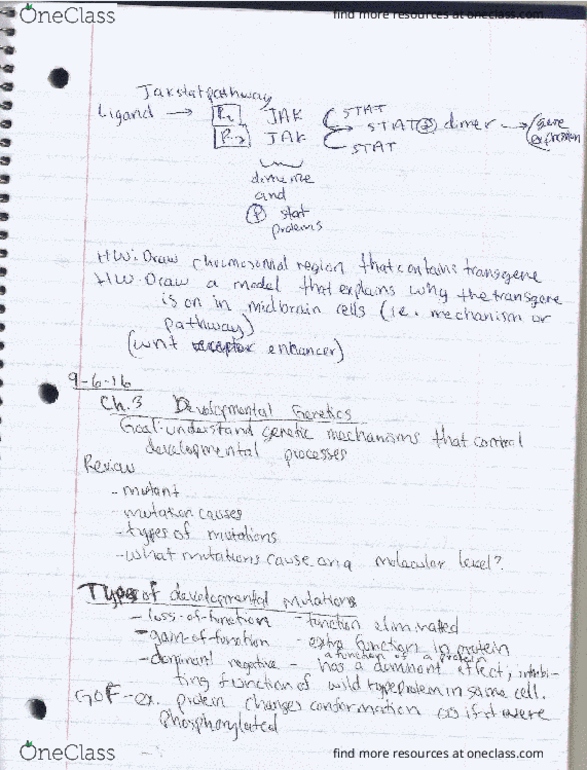 OneClass
find more resources at oneclass.com
Jakstat pathway
Ligand → R JAK STAT
R JAK STAT P dimer → gene expression
STAT
dimerize
and
P stat
proteins
HW: Draw chromosomal region that contains transgene
HW: Draw a model that explains why the transgene
is on in midbrain cells (i.e. mechanism or
pathway)
(wnt receptor enhancer)
9-6-16
Ch.3 Developmental Genetics
Goal-understand genetic mechanisms that control
developmental processes
Review
- mutant
- mutation causes
- types of mutations
- what mutations cause on a molecular level?
Types of developmental mutations
- loss-of-function - function eliminated
- gain-of-function - extra function in protein
a function of a protein
- dominant negative - has a dominant effect, inhibi-
ting function of wild type protein in same cell.
GOF - ex. protein changes conformation as if it were
phosphorylated
OneClass
find more resources at oneclass.com